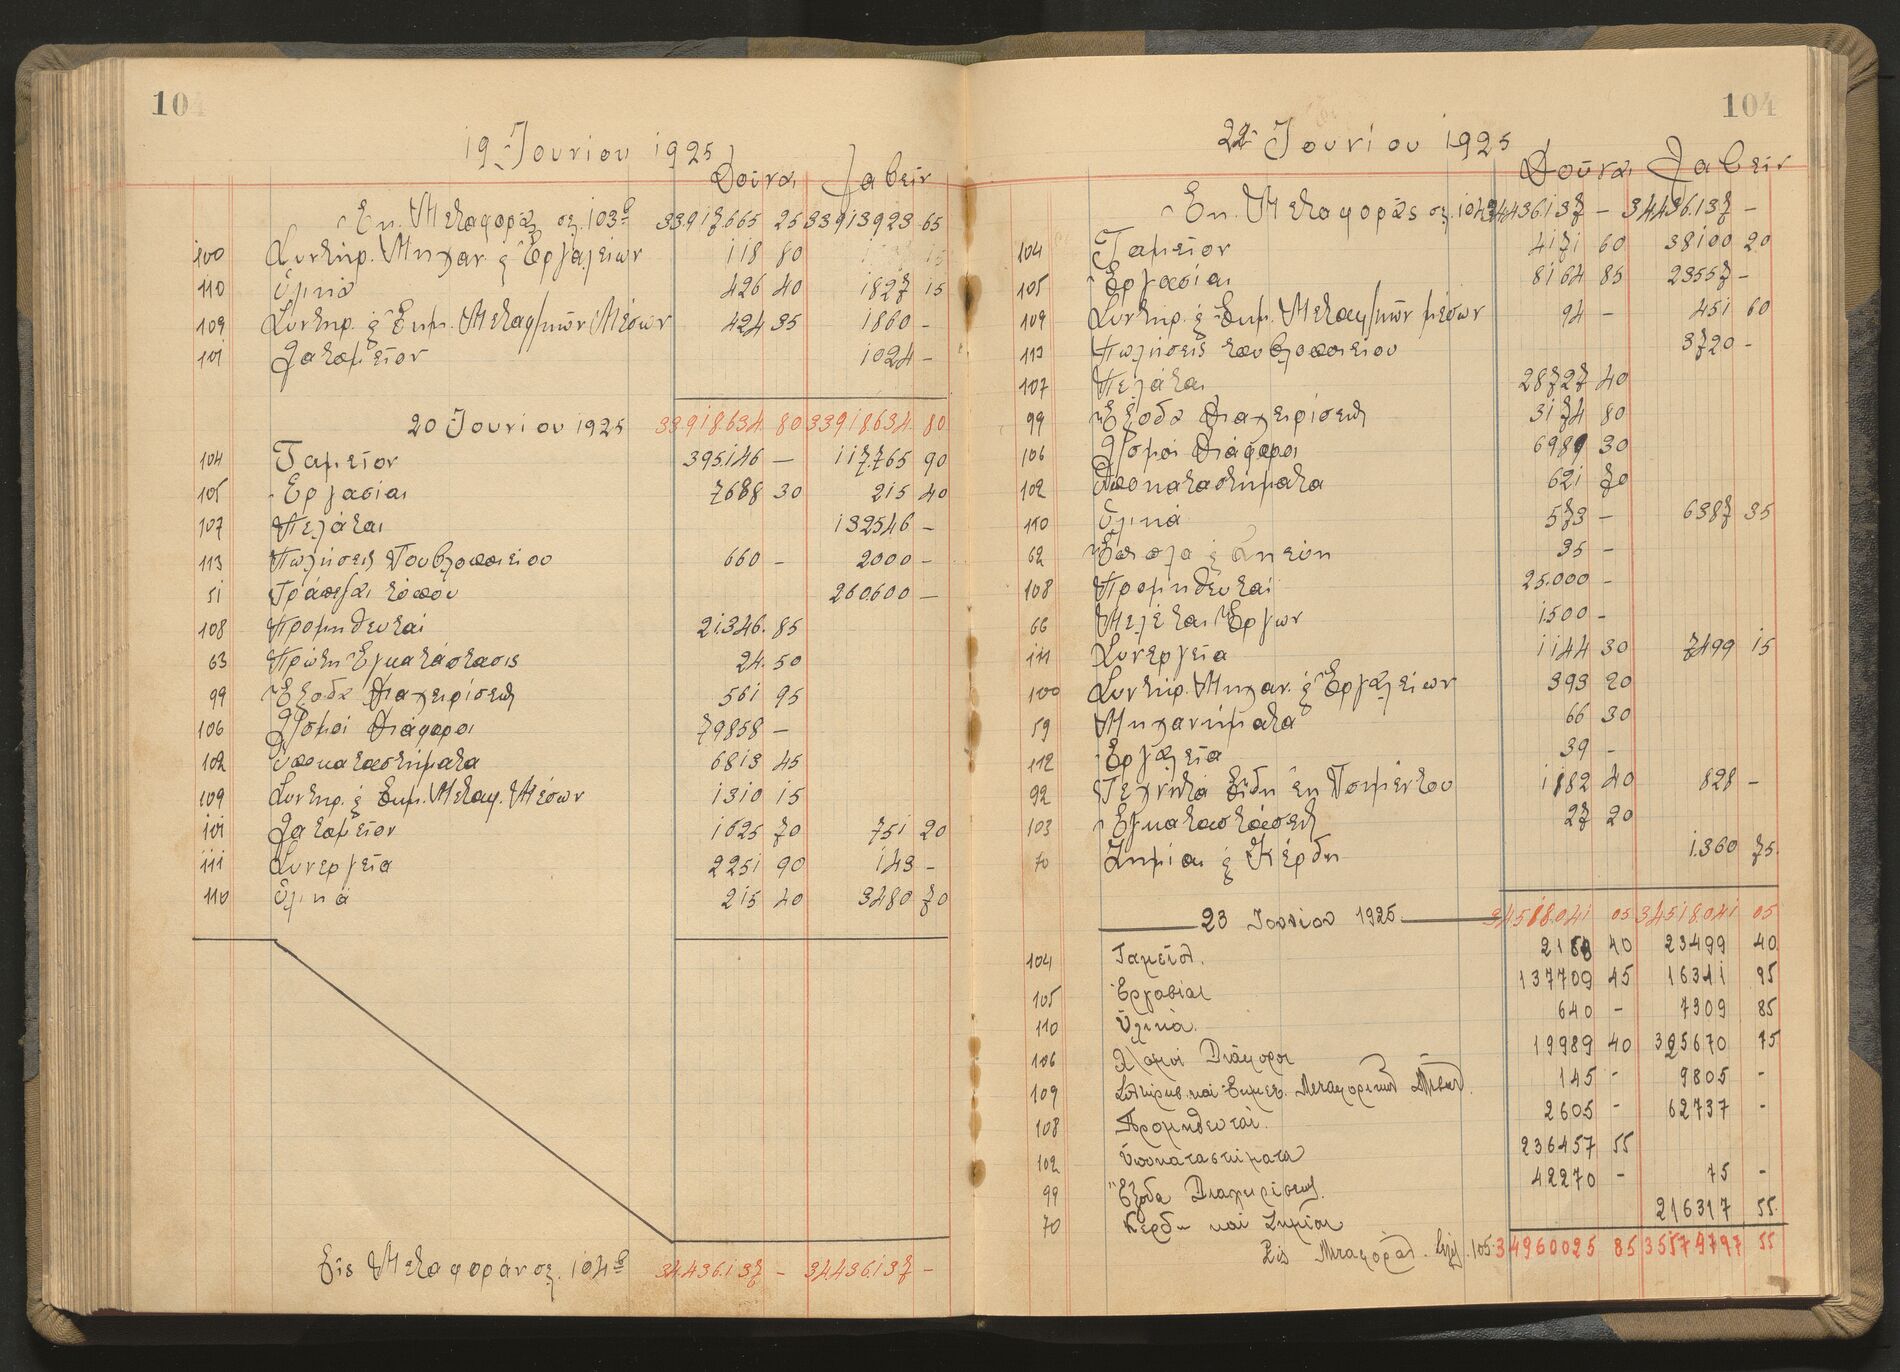 104
19 Ἰουνίου 1925
Δοῦναι Λαβεῖν
Ἐκ Μεταφορᾶς σελ. 103β 33.917.665 25 33913923 65
100 Συντήρ. Μηχαν. & Ἐργαλείων 118 80
110 Ὑλικά 426 40 1827 15
109 Συντηρ. & Ἐκμ. Μεταφ/κῶν Μέσων 424 35 1860 –
101 Λατομεῖον 1024 –
20 Ἰουνίου 1925 33.918.634. 80 33918.634. 80
104 Ταμεῖον 395.146 – 117.765 90
105 Ἐργασίαι 7688 30 215 40
107 Πελάται 132546 –
113 Πωλήσεις Τουβλοποιείου 660 – 2000 –
51 Τράπεζαι τόπου 260.600 –
108 Προμηθευταί 21.346. 85
63 Πρώτη Ἐγκατάστασις 24. 50
99 Ἔξοδα Διαχειρίσεως 561 95
106 Λ/σμοί Διάφοροι 79858 –
102 Ὑποκαταστήματα 6813 45
109 Συντηρ. & Ἐκμ. Μεταφ. Μέσων 1310 15
101 Λατομεῖον 1625 70 751 20
111 Συνεργεῖα 2251 90 143 –
110 Ὑλικά 215 40 3480 70
Εἰς Μεταφοράν σελ. 104β 34.436.137 – 34436.137 –
104
22 Ἰουνίου 1925
Δοῦναι Λαβεῖν
Ἐκ Μεταφορᾶς σελ. 104 34436.137 – 34436.137 –
104 Ταμεῖον 4171 60 38100 20
105 Ἐργασίαι 8164 85 23557 –
109 Συντηρ. & Ἐκμ. Μεταφ/κῶν μέσων 94 – 451 60
113 Πωλήσεις τουβλοποιείου 3720 –
107 Πελάται 28727 40
99 Ἔξοδα Διαχειρίσεως 3174 80
106 Λ/σμοί Διάφοροι 6989 30
102 Ὑποκαταστήματα 621 70
110 Ὑλικά 573 – 6387 35
62 Ἔπιπλα & Σκεύη 35 –
108 Προμηθευταί 25.000 –
66 Μελέται Ἔργων 1.500 –
111 Συνεργεῖα 1144 30 7499 15
100 Συντήρ. Μηχαν. & Ἐργαλείων 393 20
59 Μηχανήματα 66 30
112 Ἐργαλεῖα 39 –
92 Τεχνητά Εἴδη ἐκ Τσιμέντου 1182 40 828 –
103 Ἐγκαταστάσεις 27 20
70 Ζημίαι & Κέρδη 1.360 75
23 Ἰουνίου 1925 34518.041 05 34518.041 05
104 Ταμεῖον. 2188 40 23499 40
105 Ἐργασίαι 137709 45 16341 95
110 Ὑλικά. 640 – 7309 85
106 Λ/σμοί Διάφοροι 19989 40 325670 75
109 Συντήρησ. καί Ἐκμετ. Μεταφορικῶν Μέσων. 145 – 9805 –
108 Προμηθευταί. 2605 – 62737 –
102 Ὑποκαταστήματα 236457 55
99 Ἔξοδα Διαχειρίσεως. 42270 – 75 –
70 Κέρδη καί Ζημίαι 216317 55
Εἰς Μεταφοράν. Σελίς. 105 34960025 85 35574797 55